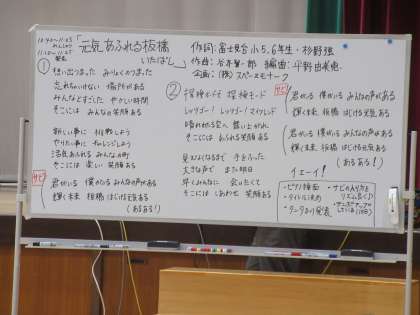 10:40~11:05
11:20~11:45
「元気あふれる板橋
いたばし」
作詞：富士見台小5.6年生・杉野強
作曲：谷本賢一郎 編曲：平野由美恵
企画：(株)スペースモナーク
①
想い出つまった みりょくのつまった
忘れちゃいけない 場所がある
みんなとすごした やさしい時間
そこには みんなの笑顔ある
新しい事に 挑戦しよう
やりたい事に チャレンジしよう
活気あふれる みんなの町
そこには 楽しい 笑顔ある
サビ
君がいる 僕がいる みんなの声がある
輝く未来 板橋 はじける元気ある
(あるある!)
②
探検するぞ 探検モード
レッツゴー! レッツゴー! マイフレンド
晴れわたる空へ 舞い上がれ
そこには あふれる笑顔ある
見えなくなるまで 手をふった
大きな声で また明日
早くみんなに 会いたくて
そこには しあわせ 笑顔ある
サビ
君がいる 僕がいる みんなの声がある
輝く未来 板橋 はじける元気ある
君がいる 僕がいる みんなの声がある
輝く未来 板橋 はじける元気ある
(あるある!)
イェーイ!
・ピアノ伴奏
・タイトル決め
・サビの入り方を
リズム良く♪